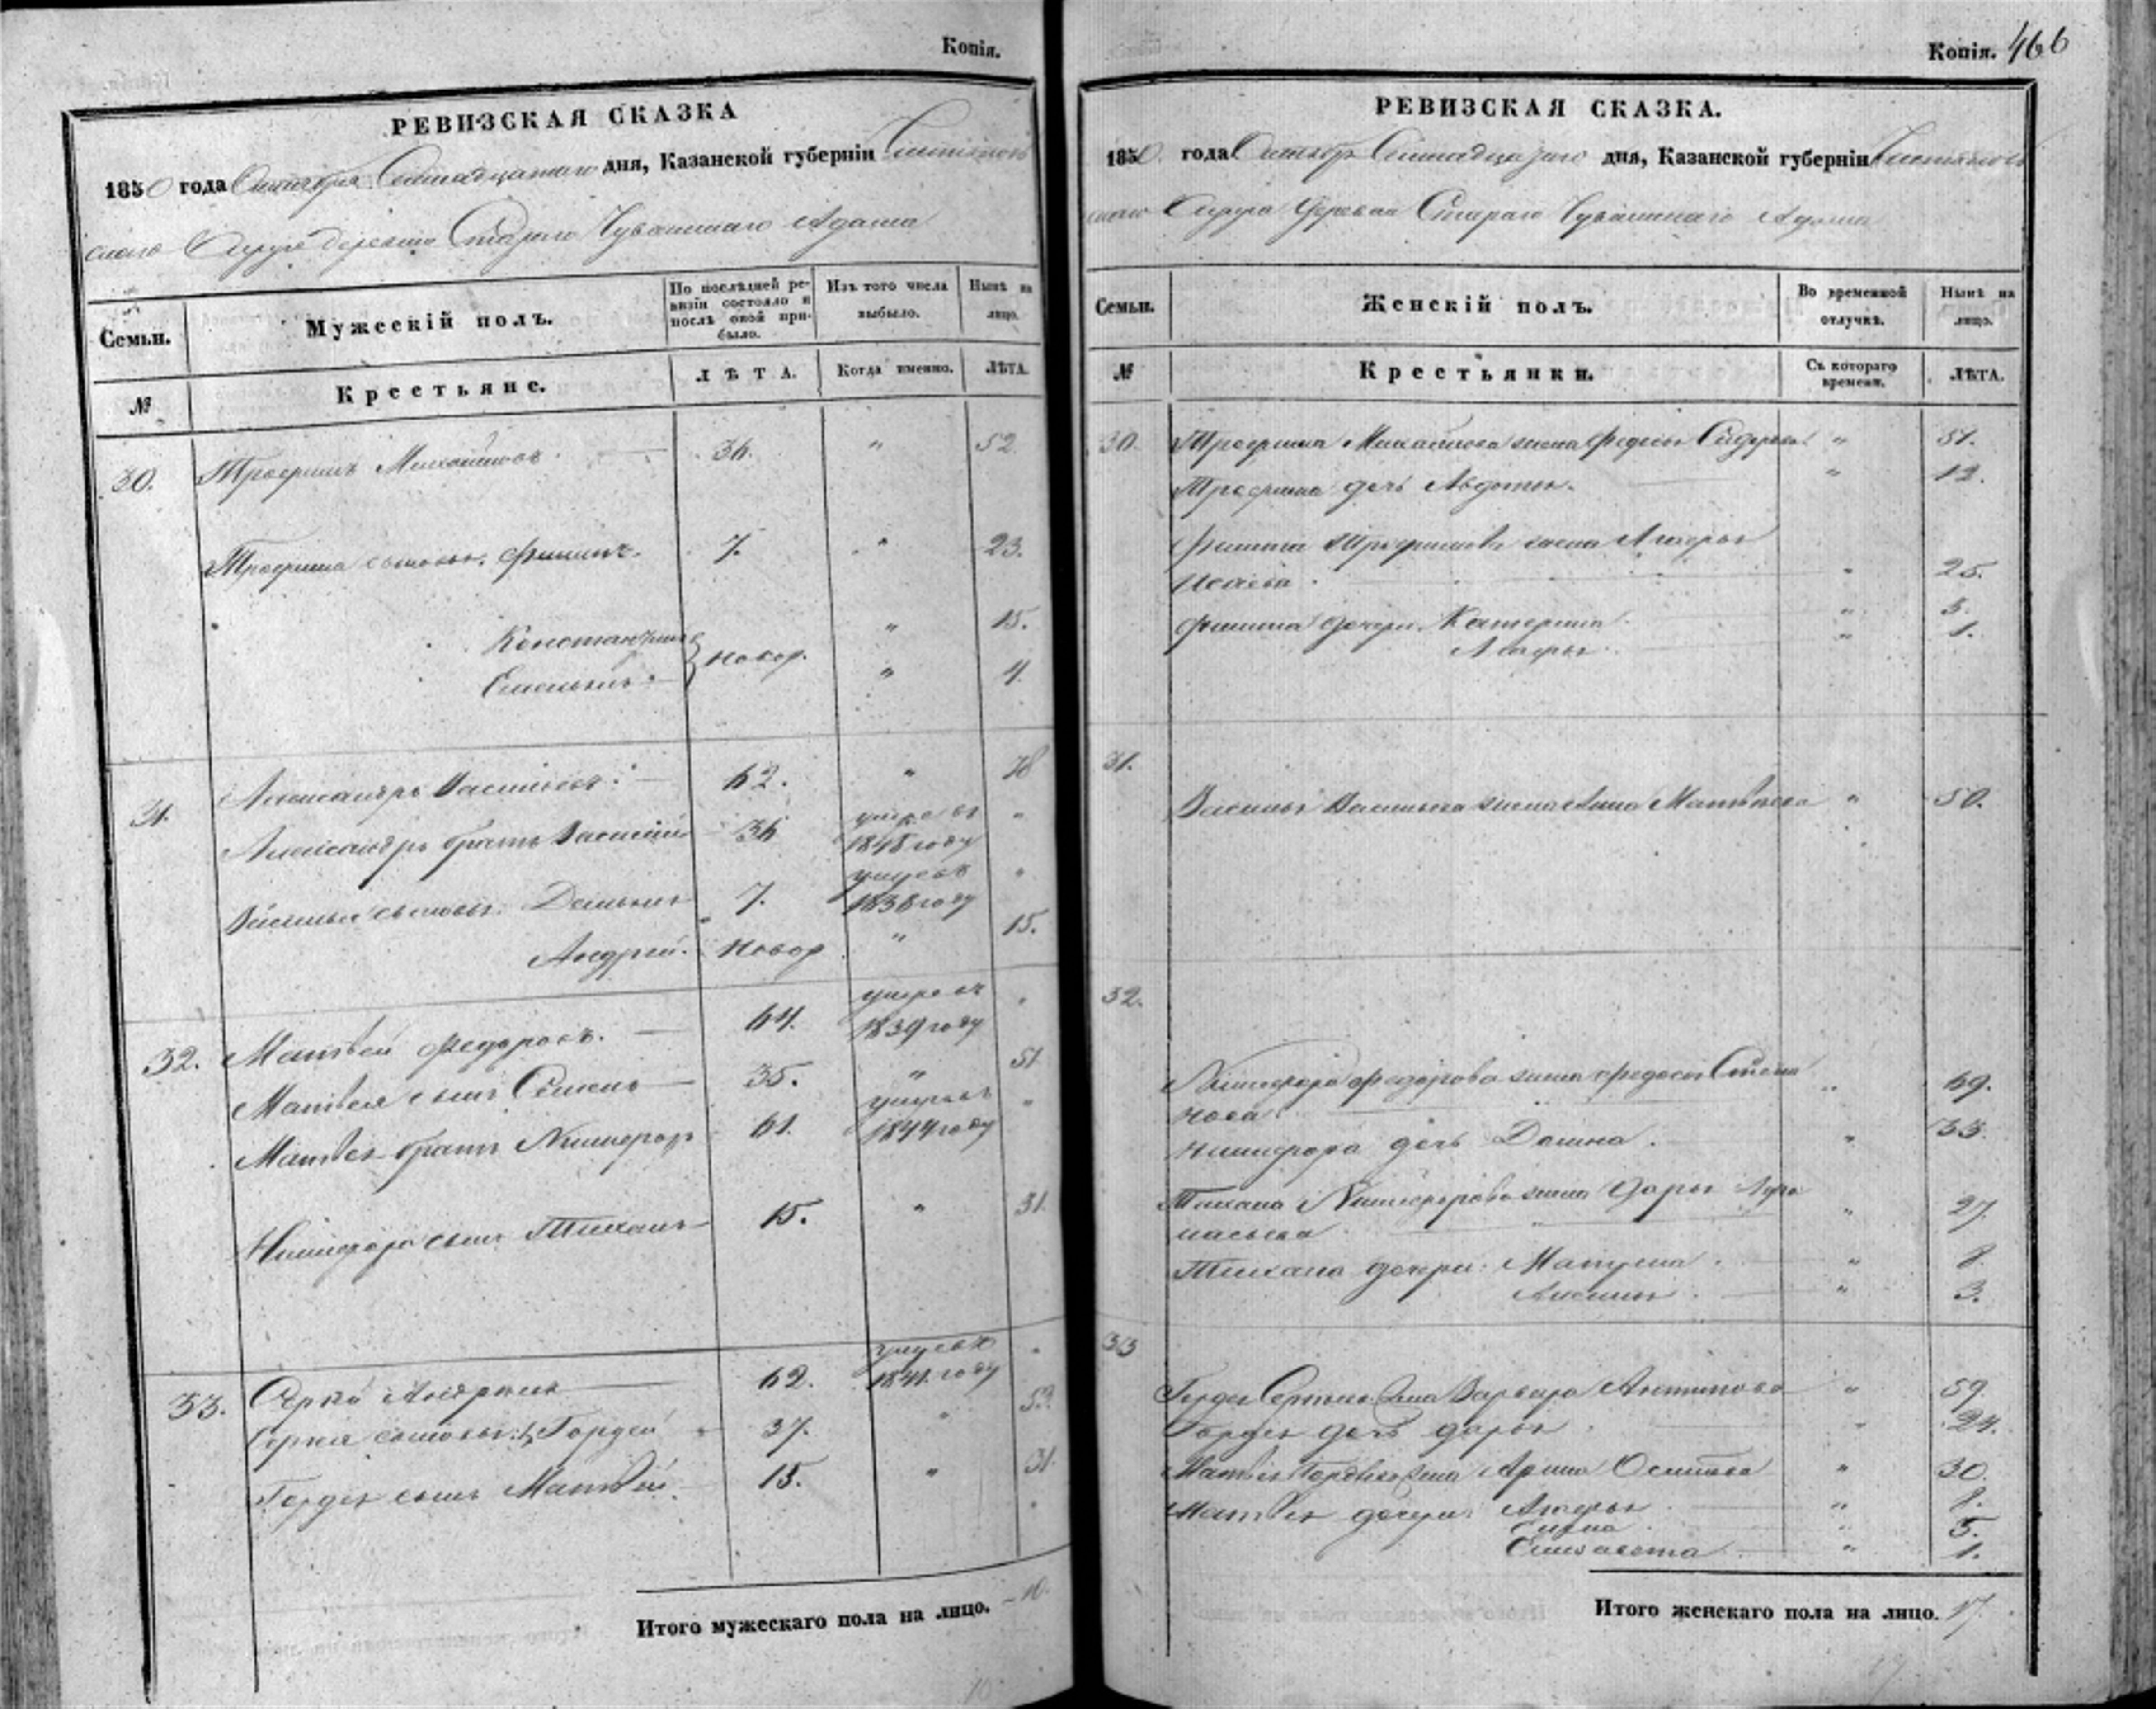 Копія.
РЕВИЗСКАЯ СКАЗКА
1850 года Октября Семнадцатаго дня, Казанской губерніи Чистополь
скаго Округа деревни Стараго Чувашскаго Адама
Семьи.
Мужескій полъ.
По послѣдней ре-
визіи состояло и
послѣ оной при-
было.
Изъ того числа
выбыло.
Нынѣ на
лицо.
№
Крестьяне.
ЛѢТА.
Когда именно.
ЛѢТА.
30. Трофимъ Михайловъ 36. " 52.
Трофима сыновья: Филипъ 7. " 23.
Константинъ " 15.
новор.
Емельянъ " 4.
31. Александръ Васильевъ 62. " 78
Александра братъ Василій 36 умре въ 1848 году "
Василья сыновья: Демьянъ 7. умре въ 1838 году "
Андрей новор " 15.
32. Матвѣй Федоровъ. 64. умре въ 1839 году "
Матвѣя сынъ Семенъ 35. " 51
Матвѣя братъ Никифоръ 61. умре въ 1844 году "
Никифора сынъ Тихонъ 15. " 31.
33. Сергѣй Андреевъ 62. умре въ 1841 году "
Сергѣя сыновья: 1, Гордей 37. " 53.
Гордея сынъ Матвѣй 15. " 31.
Итого мужескаго пола на лицо. 10.
10
Копія. 466
РЕВИЗСКАЯ СКАЗКА.
1850 года Октября Семнадцатаго дня, Казанской губерніи Чистополь
скаго Округа деревни Стараго Чувашскаго Адама
Семьи.
Женскій полъ.
Во временной
отлучкѣ.
Нынѣ на
лицо.
№
Крестьянки.
Съ котораго
времени.
ЛѢТА.
30. Трофима Михайлова жена Федосья Сидорова " 51.
Трофима дочь Авдотья " 12.
Филипа Трофимова жена Агафья
Исаева " 25.
Филипа дочери: Катерина " 5.
Агафья " 1.
31.
Василья Васильева жена Анна Матвѣева " 50.
32.
Никифора Федорова жена Федосья Степа
нова " 69.
Никифора дочь Домна. " 33.
Тихона Никифорова жена Дарья Афа
насьева " 27.
Тихона дочери: Матрена " 8.
Аксинья " 3.
33
Гордея Сергѣева жена Варвара Антипова " 59.
Гордея дочь Дарья " 24.
Матвѣя Гордѣева жена Арина Осипова " 30.
Матвѣя дочери: Агафья " 8.
Елена " 5.
Елизавета " 1.
Итого женскаго пола на лицо. 17.